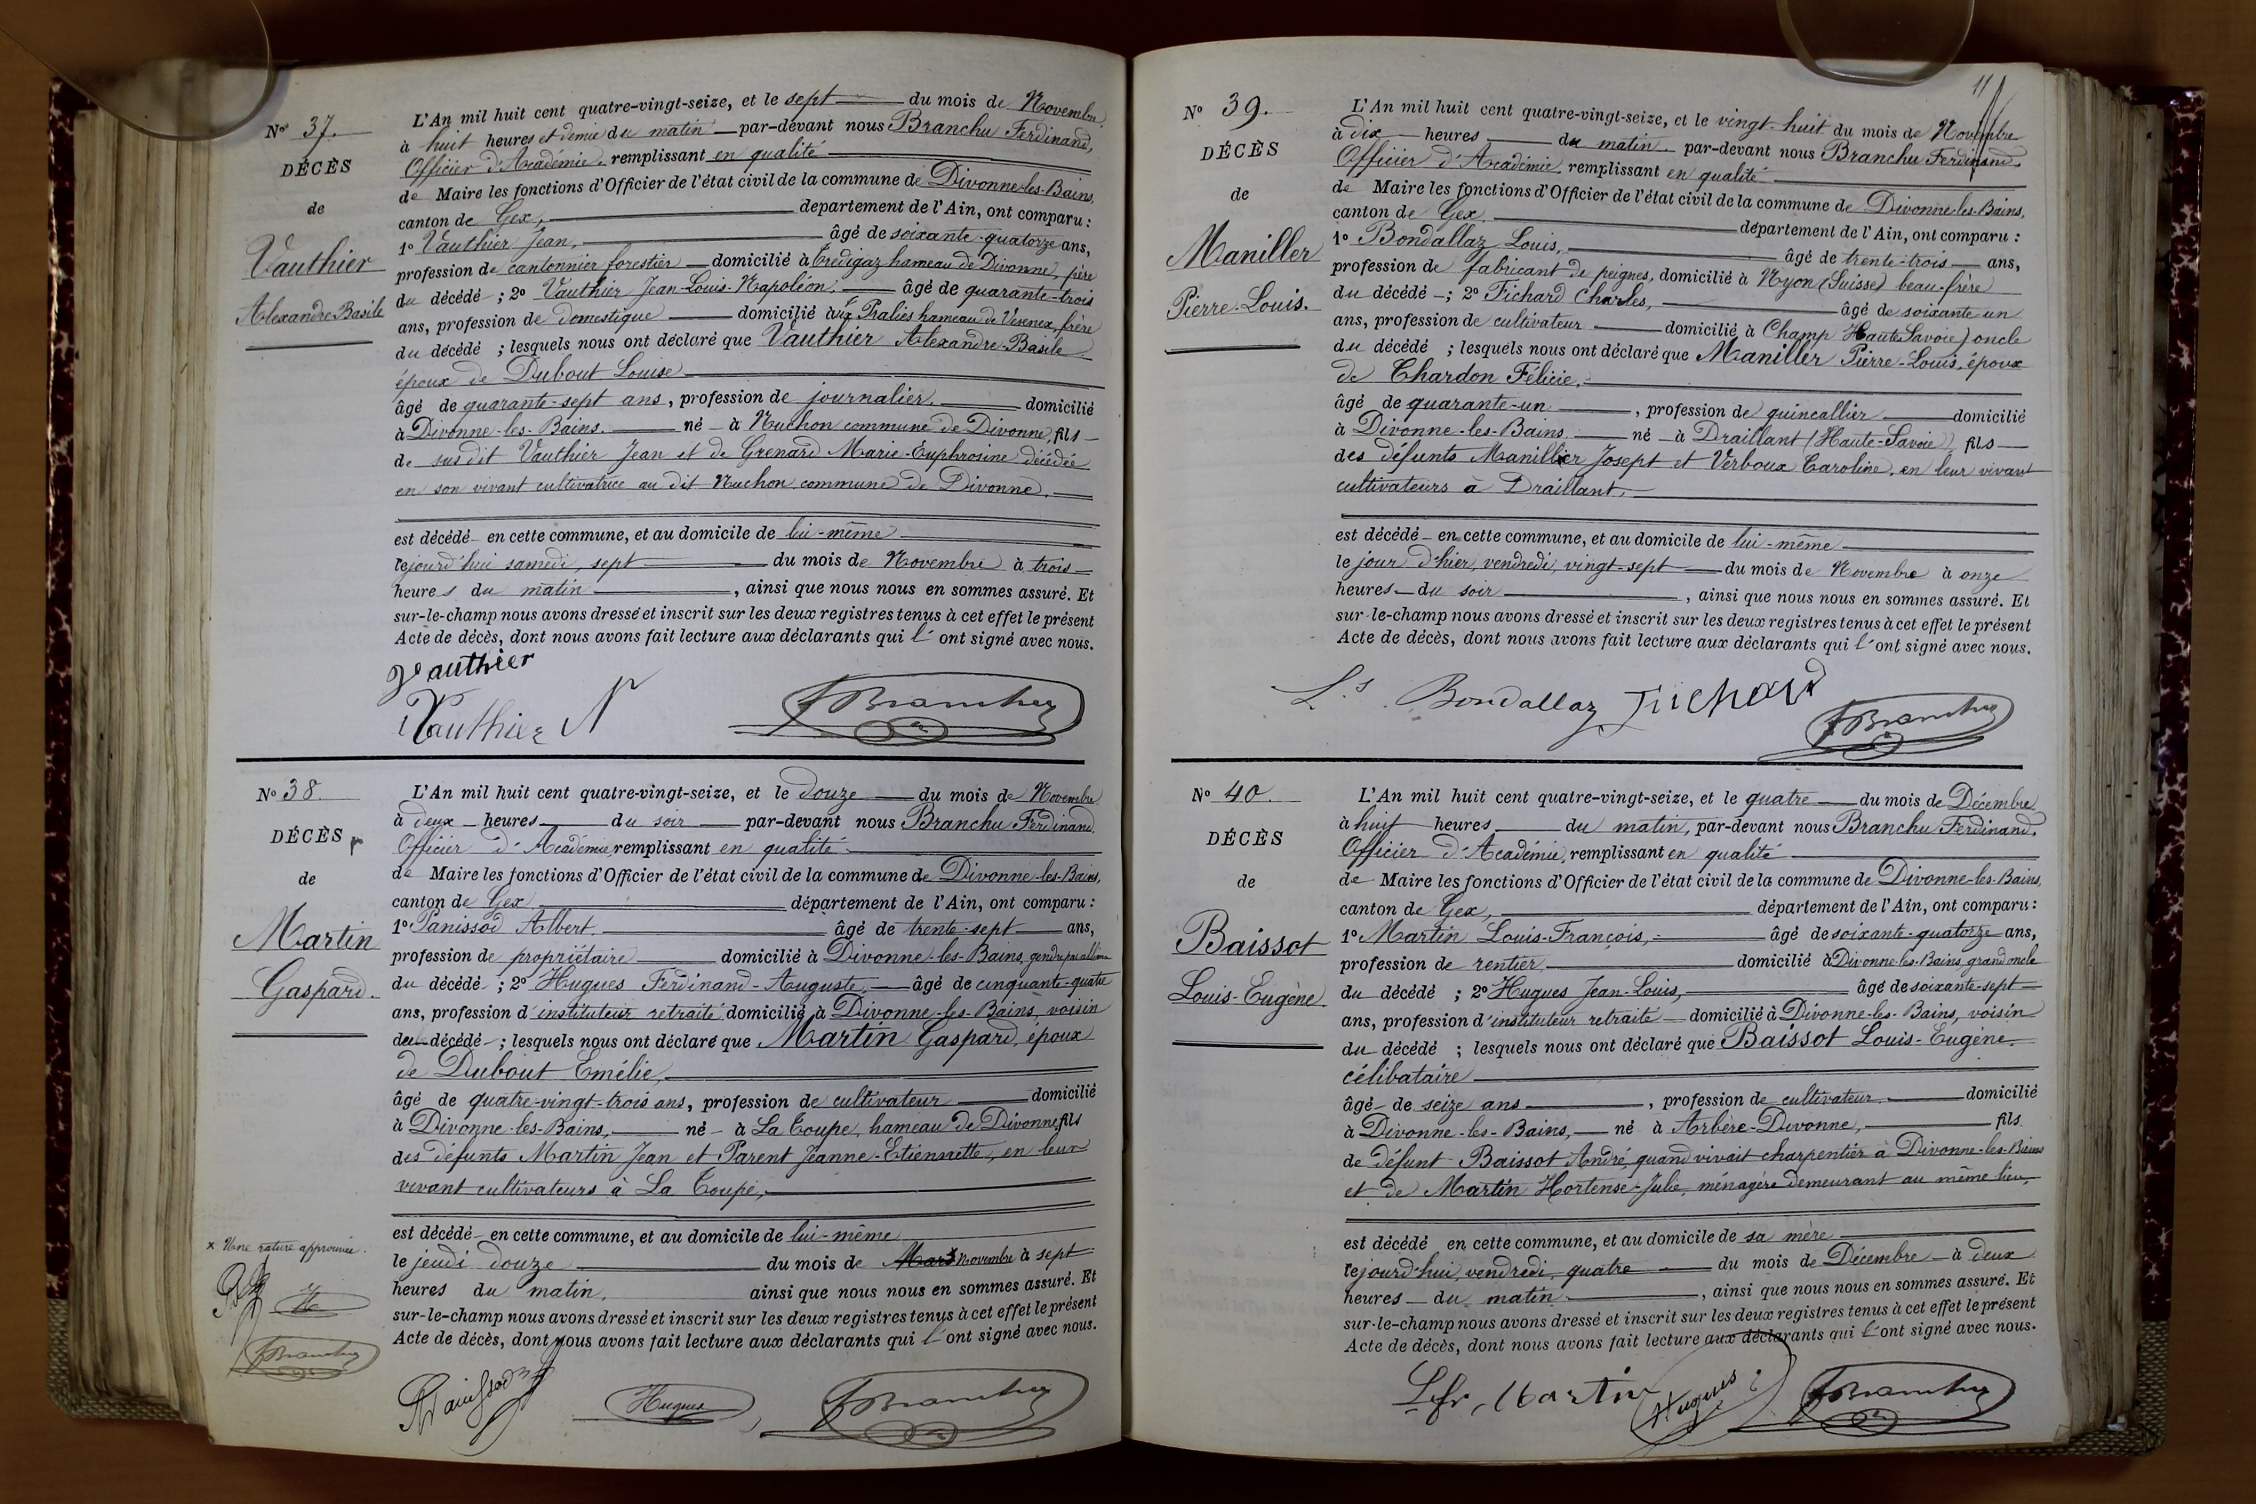 Nº 37.
DÉCÈS
de
Vauthier
Alexandre Basile
L'An mil huit cent quatre-vingt-seize, et le sept du mois de Novembre
à huit heures et demie du matin par-devant nous Branchu Ferdinand,
Officier d'Académie, remplissant en qualité
de Maire les fonctions d'Officier de l'état civil de la commune de Divonne-les-Bains,
canton de Gex, département de l'Ain, ont comparu :
1º Vauthier Jean, âgé de soixante-quatorze ans,
profession de cantonnier forestier domicilié à hameau de Divonne, père
du décédé ; 2º Vauthier Jean-Louis-Napoléon. âgé de quarante-trois
ans, profession de domestique domicilié aux Praliès hameau de Vesenex, frère
du décédé ; lesquels nous ont déclaré que Vauthier Alexandre-Basile
époux de Dubout Louise
âgé de quarante-sept ans, profession de journalier. domicilié
à Divonne-les-Bains. né à Ruchon commune de Divonne, fils
de sus dit Vauthier Jean et de Grenard Marie-Euphrosine décédée
en son vivant cultivatrice au dit Ruchon commune de Divonne.
est décédé en cette commune, et au domicile de lui-même
lejourd'hui samedi, sept du mois de Novembre à trois
heures du matin, ainsi que nous nous en sommes assuré. Et
sur-le-champ nous avons dressé et inscrit sur les deux registres tenus à cet effet le présent
Acte de décès, dont nous avons fait lecture aux déclarants qui l'ont signé avec nous.
Vauthier
Vauthier N
FBranchu
Nº 38.
DÉCÈS
de
Martin
Gaspard.
L'An mil huit cent quatre-vingt-seize, et le douze du mois de Novembre
à deux heures du soir par-devant nous Branchu Ferdinand,
Officier d'Académie, remplissant en qualité
de Maire les fonctions d'Officier de l'état civil de la commune de Divonne-les-Bains,
canton de Gex département de l'Ain, ont comparu :
1º Panissod Albert. âgé de trente-sept ans,
profession de propriétaire domicilié à Divonne-les-Bains, gendre par alliance
du décédé ; 2º Hugues Ferdinand-Auguste, âgé de cinquante-quatre
ans, profession d'instituteur retraité, domicilié à Divonne-les-Bains, voisin
du décédé ; lesquels nous ont déclaré que Martin Gaspard, époux
de Dubout Emélie,
âgé de quatre-vingt-trois ans, profession de cultivateur domicilié
à Divonne-les-Bains, né à La Coupe, hameau de Divonne, fils
des défunts Martin Jean et Parent Jeanne-Etiennette, en leur
vivant cultivateurs à La Coupe,
est décédé en cette commune, et au domicile de lui-même
le jeudi douze du mois de Mars x Novembre à sept
heures du matin, ainsi que nous nous en sommes assuré. Et
sur-le-champ nous avons dressé et inscrit sur les deux registres tenus à cet effet le présent
Acte de décès, dont nous avons fait lecture aux déclarants qui l'ont signé avec nous.
x Une rature approuvée.
H
FBranchu
APanissod
Hugues
FBranchu
11
Nº 39.
DÉCÈS
de
Maniller
Pierre-Louis.
L'An mil huit cent quatre-vingt-seize, et le vingt-huit du mois de Novembre
à dix heures du matin par-devant nous Branchu Ferdinand,
Officier d'Académie, remplissant en qualité
de Maire les fonctions d'Officier de l'état civil de la commune de Divonne-les-Bains,
canton de Gex, département de l'Ain, ont comparu :
1º Bondallaz Louis, âgé de trente-trois ans,
profession de fabricant de peignes, domicilié à Nyon (Suisse) beau-frère
du décédé ; 2º Fichard Charles, âgé de soixante un
ans, profession de cultivateur domicilié à Champ Haute Savoie) oncle
du décédé ; lesquels nous ont déclaré que Maniller Pierre-Louis, époux
de Chardon Félicie,
âgé de quarante-un, profession de quincallier domicilié
à Divonne-les-Bains né à Draillant (Haute-Savoie), fils
des défunts Maniller Josept et Verboux Caroline, en leur vivant
cultivateurs à Draillant,
est décédé en cette commune, et au domicile de lui-même
le jour d'hier, vendredi, vingt-sept du mois de Novembre à onze
heures du soir, ainsi que nous nous en sommes assuré. Et
sur-le-champ nous avons dressé et inscrit sur les deux registres tenus à cet effet le présent
Acte de décès, dont nous avons fait lecture aux déclarants qui l'ont signé avec nous.
L.s Bondallaz Fichard
FBranchu
Nº 40.
DÉCÈS
de
Baissot
Louis-Eugène
L'An mil huit cent quatre-vingt-seize, et le quatre du mois de Décembre
à huit heures du matin, par-devant nous Branchu Ferdinand,
Officier d'Académie, remplissant en qualité
de Maire les fonctions d'Officier de l'état civil de la commune de Divonne-les-Bains,
canton de Gex, département de l'Ain, ont comparu :
1º Martin Louis-François, âgé de soixante-quatorze ans,
profession de rentier domicilié à Divonne-les-Bains, grand oncle
du décédé ; 2º Hugues Jean-Louis, âgé de soixante-sept
ans, profession d'instituteur retraité domicilié à Divonne-les-Bains, voisin
du décédé ; lesquels nous ont déclaré que Baissot Louis-Eugène.
célibataire
âgé de seize ans, profession de cultivateur. domicilié
à Divonne-les-Bains, né à Arbère-Divonne, fils
de défunt Baissot André, quand vivait charpentier à Divonne-les-Bains
et de Martin Hortense-Julie, ménagère demeurant au même lieu,
est décédé en cette commune, et au domicile de sa mère
lejourd'hui vendredi, quatre du mois de Décembre à deux
heures du matin, ainsi que nous nous en sommes assuré. Et
sur-le-champ nous avons dressé et inscrit sur les deux registres tenus à cet effet le présent
Acte de décès, dont nous avons fait lecture aux déclarants qui l'ont signé avec nous.
L. fr. Martin Hugues
FBranchu